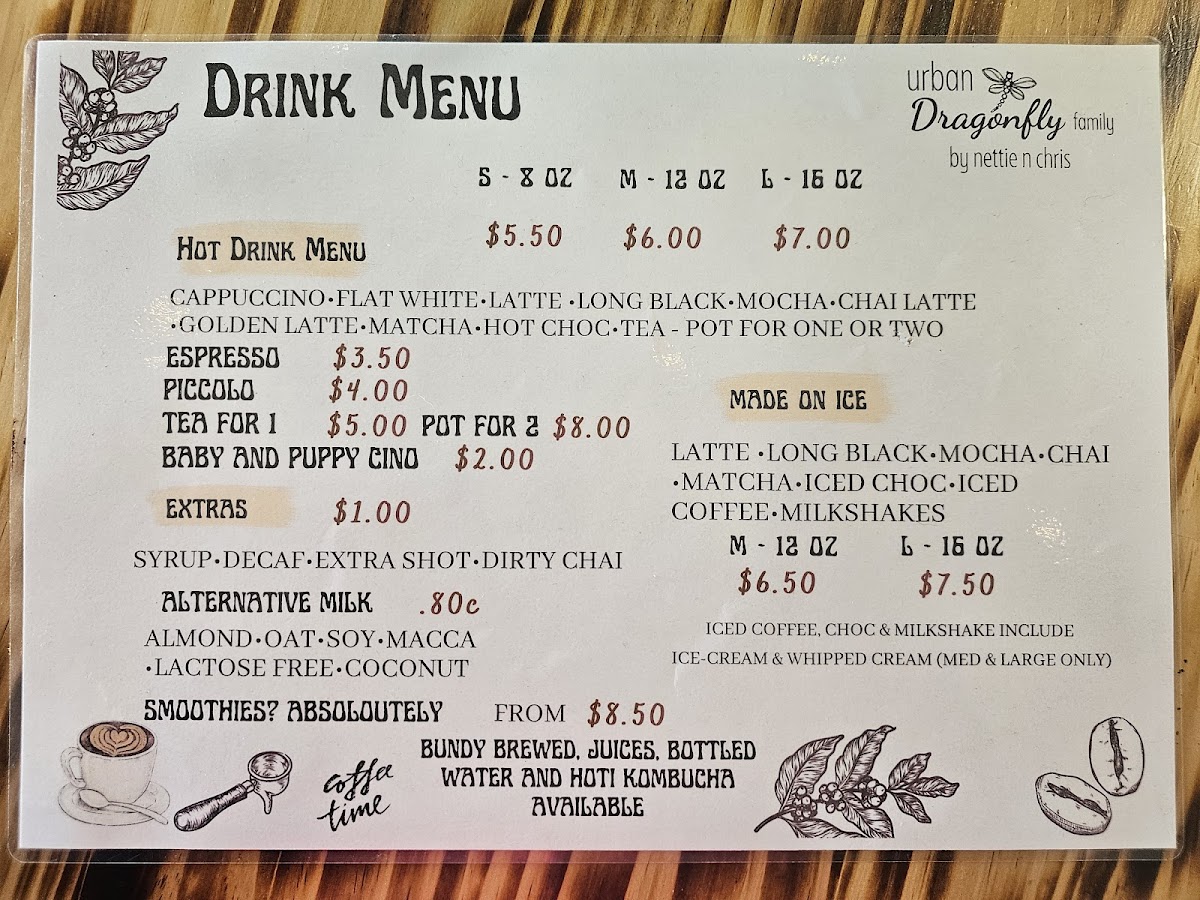 DRINK MENU
urban
Dragonfly family
by nettie n chris
S - 8 OZ M - 12 OZ L - 16 OZ
HOT DRINK MENU $5.50 $6.00 $7.00
CAPPUCCINO•FLAT WHITE•LATTE •LONG BLACK•MOCHA•CHAI LATTE
•GOLDEN LATTE•MATCHA•HOT CHOC•TEA - POT FOR ONE OR TWO
ESPRESSO $3.50
PICCOLO $4.00
TEA FOR 1 $5.00 POT FOR 2 $8.00
BABY AND PUPPY CINO $2.00
EXTRAS $1.00
SYRUP•DECAF•EXTRA SHOT•DIRTY CHAI
ALTERNATIVE MILK .80c
ALMOND•OAT•SOY•MACCA
•LACTOSE FREE•COCONUT
MADE ON ICE
LATTE •LONG BLACK•MOCHA•CHAI
•MATCHA•ICED CHOC•ICED
COFFEE•MILKSHAKES
M - 12 OZ L - 16 OZ
$6.50 $7.50
ICED COFFEE, CHOC & MILKSHAKE INCLUDE
ICE-CREAM & WHIPPED CREAM (MED & LARGE ONLY)
SMOOTHIES? ABSOLOUTELY FROM $8.50
BUNDY BREWED, JUICES, BOTTLED
WATER AND HOTI KOMBUCHA
AVAILABLE
coffee
time